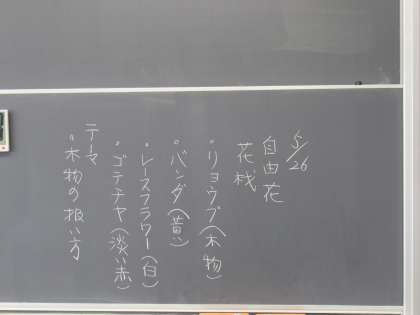 5/26
自由花
花材
・リョウブ(木物)
・バンダ(黄)
・レースフラワー(白)
・ゴデチヤ(淡い赤)
テーマ
・木物の扱い方